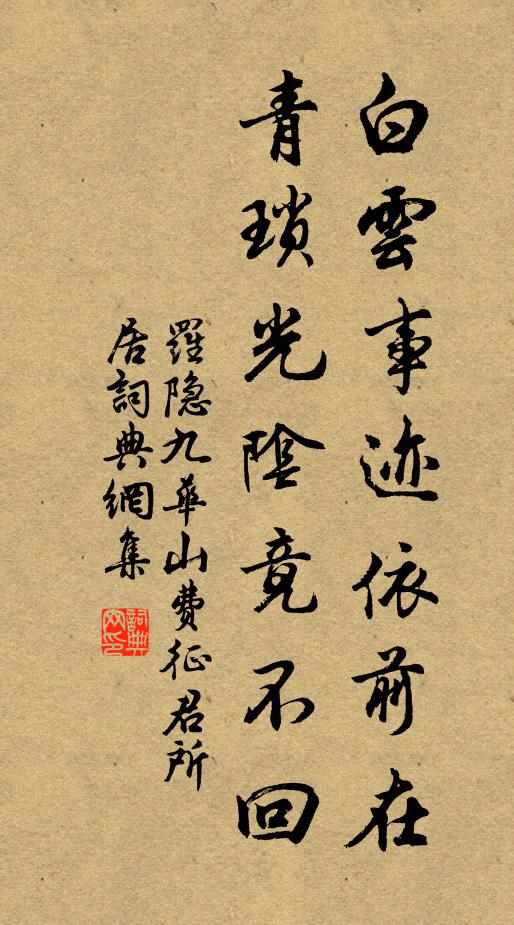 白雲事迹依前在
青瑣光陰竟不回
羅隐九華山費征君所
居詞典網集
詞典网印